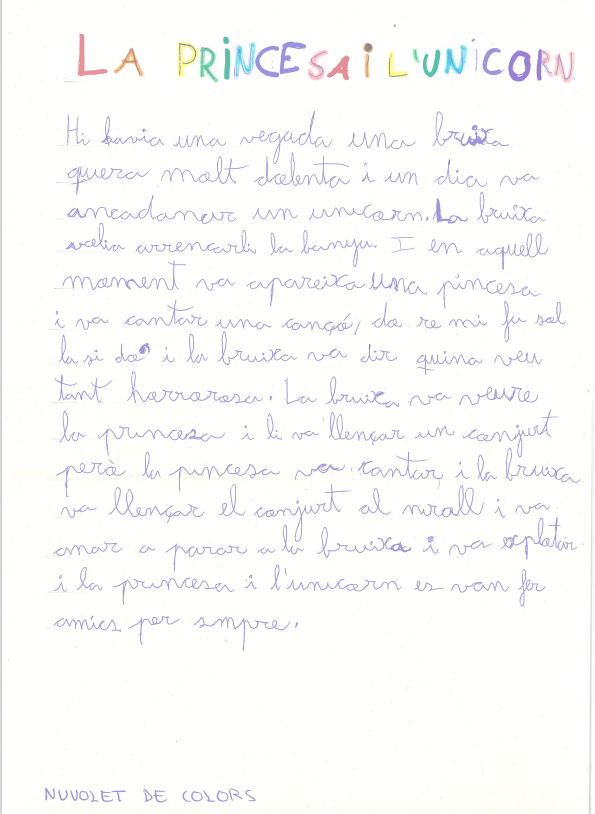 LA PRINCESA I L'UNICORN
Hi havia una vegada una bruixa
quera molt dolenta i un dia va
ancadanar un unicorn. La bruixa
volia arrencarli la banya. I en aquell
moment va apareixa una pincesa
i va cantar una cançó, do re mi fa sol
la si do i la bruixa va dir quina veu
tant horrorosa. La bruixa va veure
la princesa i li va llençar un conjurt
però la pincesa va cantar, i la bruixa
va llençar el conjurt al mirall i va
anar a parar a la bruixa i va explotar.
i la princesa i l'unicorn es van fer
amics per smpre.
NUVOLET DE COLORS